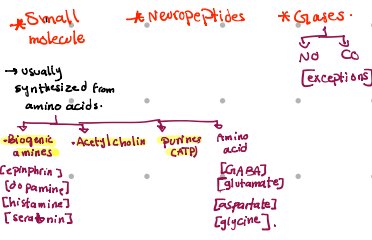 *Small molecule
*Neuropeptides
*Gases.
NO CO
[exceptions]
→ usually
synthesized from
amino acids.
•Biogenic
amines
•Acetylcholin
Purines
(ATP)
Amino
acid
[epinphrin]
[dopamine]
[histamine]
[seratonin]
[GABA]
[glutamate]
[aspartate]
[glycine].